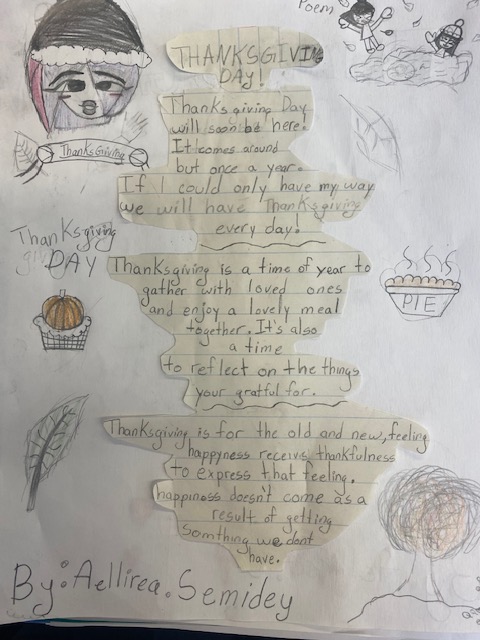 Poem
THANKSGIVING
DAY!
Thanksgiving Day
will soon be here.
It comes around
but once a year.
If I could only have my way
we will have Thanksgiving
every day!
ThanksGiving
Thanksgiving
DAY
Thanksgiving is a time of year to
gather with loved ones
and enjoy a lovely meal
together. It's also
a time
to reflect on the things
your gratful for.
PIE
Thanksgiving is for the old and new, feeling
happyness receive thankfulness
to express that feeling.
happiness doesn't come as a
result of getting
Somthing we dont
have.
By: Aellirea. Semidey